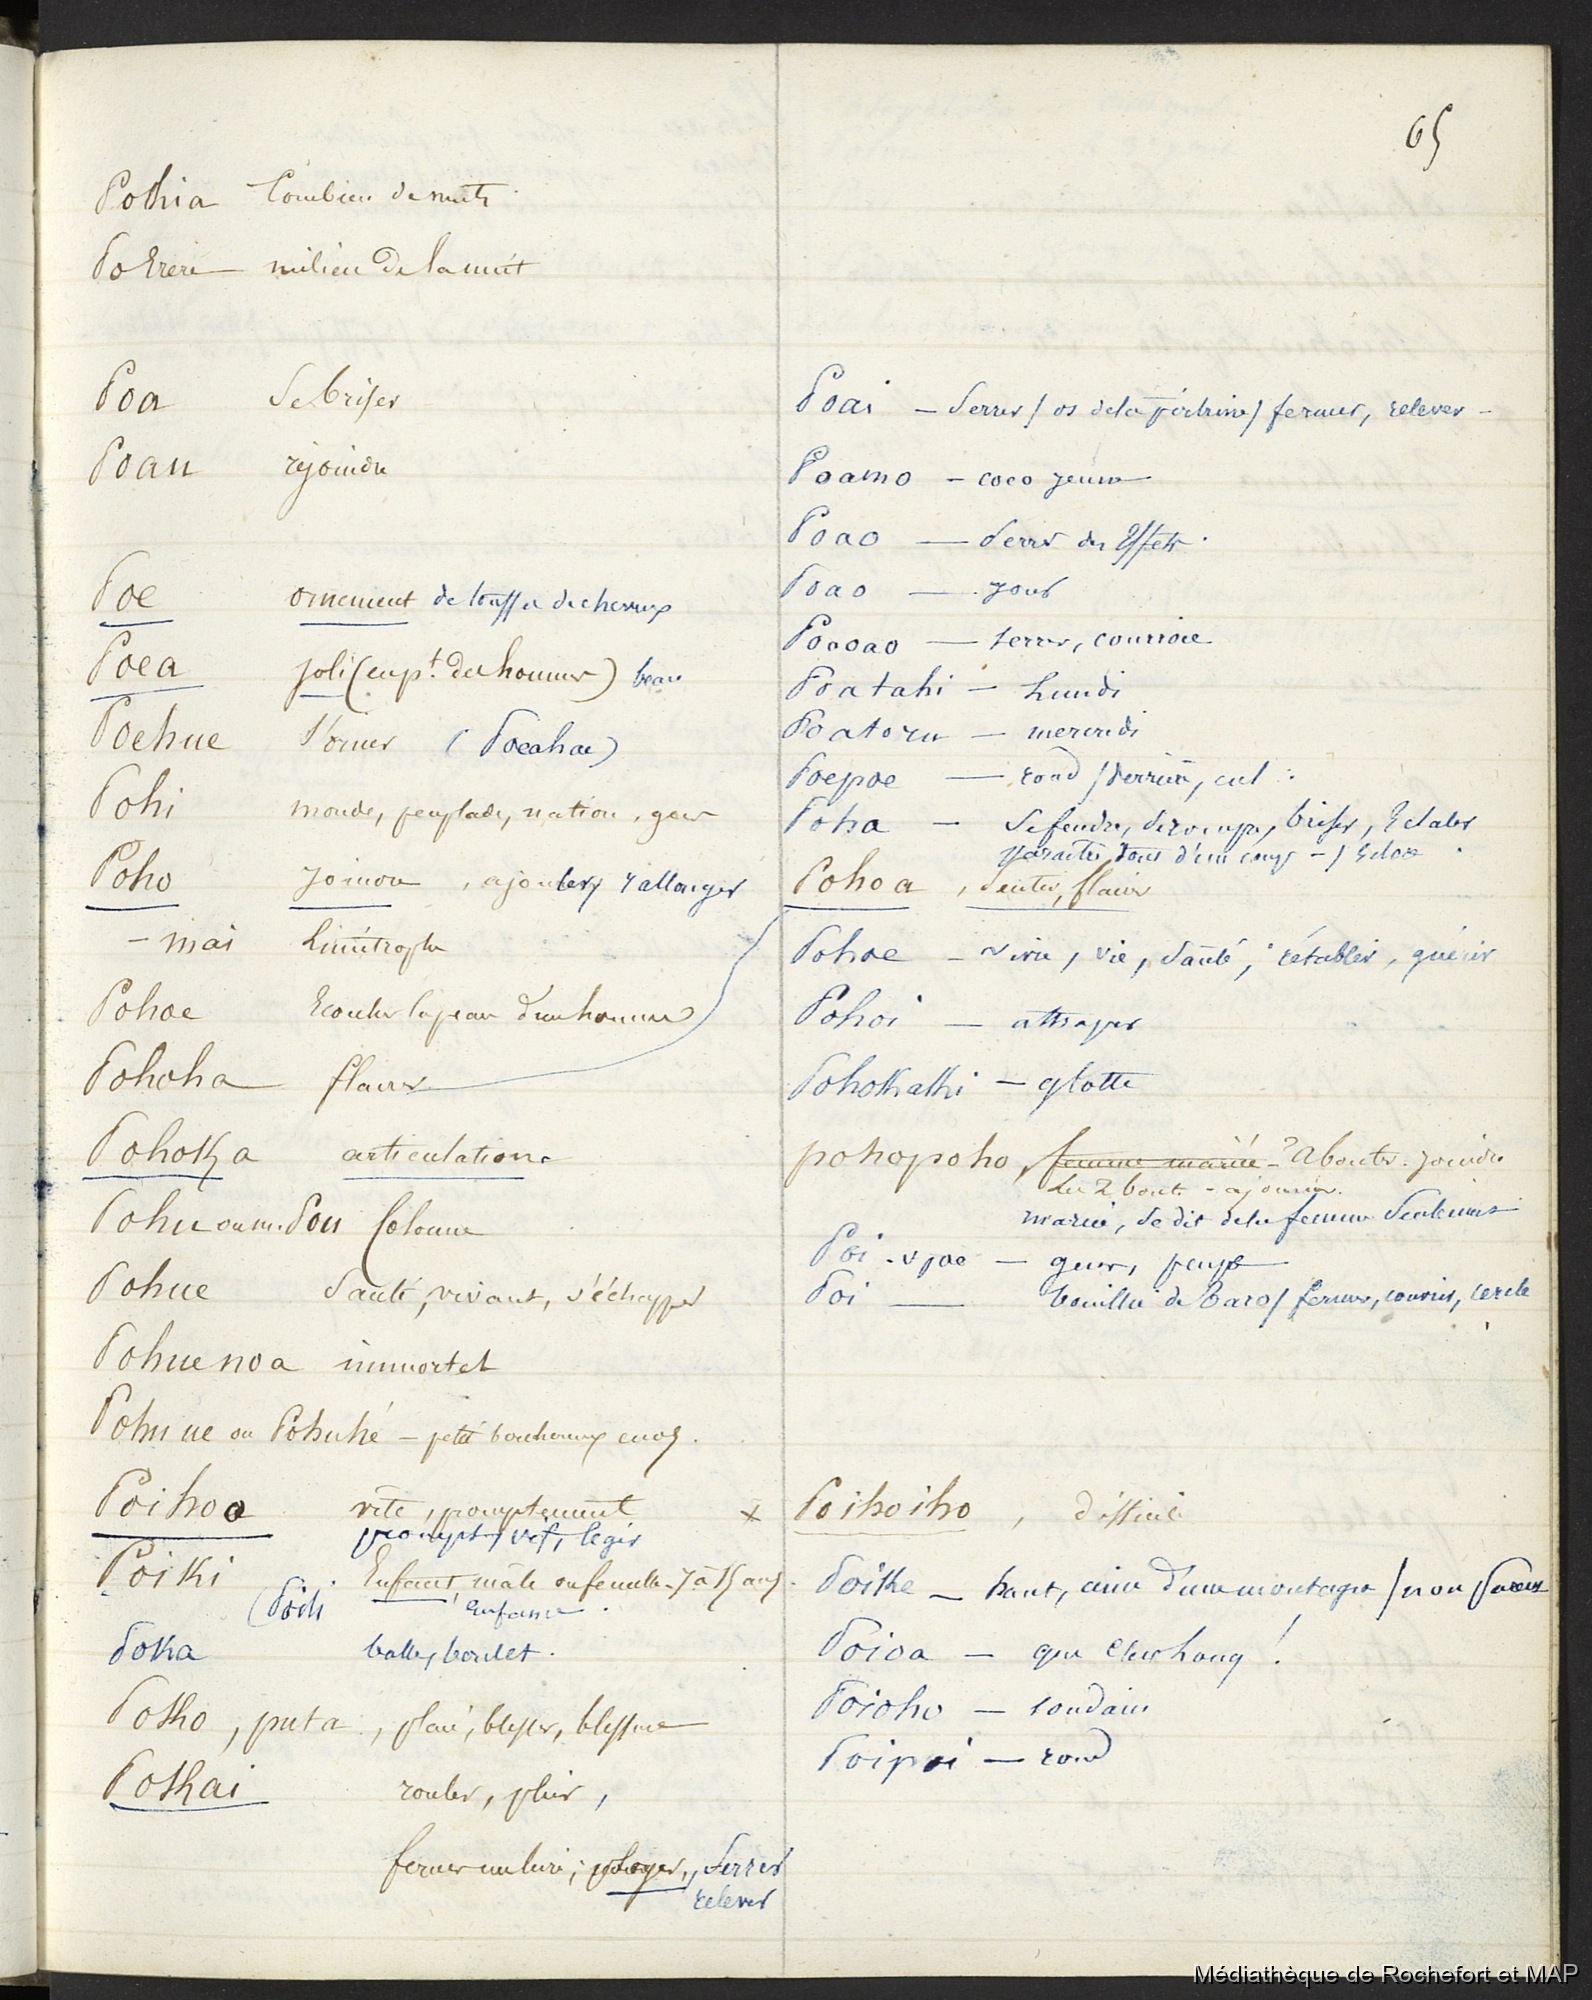 65
Pohia Combien de nuits
Po Erere milieu de la nuit
Poa Se briser
Poau rejoindre
Poe ornement de touffe de cheveux
Poea joli (en pt. des hommes) beau
Poehue s'orner (Poeahae)
Pohi monde, peuplade, nation, gens
Poho joindre, ajouter, rallonger
- mai limitrophe
Pohoe Ecouter la peau d'un homme
Pohoha flairer
Pohoka articulation
Pohu ou Pou Colonne
Pohue Santé, vivant, s'échapper
Pohuenoa immortel
Pohuue ou Pohuhé - petit
Poihoo vite, promptement
prompt, vif, léger
Poiki Enfant, mâle ou femelle 7 à 15 ans
(Poiti enfance.
Poka balle, boulet.
Pokho, puta, plaie, blesser, blessure
Pokhai rouler, plier,
fermer un livre; ployer, serrer
relever
Poai - Serrer / os de la poitrine / fermer, relever -
Poamo - coco jeune
Poao - Serrer des Effets.
Poao - jour
Pooao - serrer, courroie
Poatahi - Lundi
Poatoru - mercredi
Poepoe - rond / derrière, cul
Poha - Se fendre, se rompre, briser, Eclater
paraître tout d'un coup - / Eclore
Pohoa, Sentir, flairer
Pohoe - vivre, vie, santé, rétablir, guérir
Pohoi - attraper
Pohokakhi - glotte
pohopoho, femme mariée - ? Abouter. joindre
les 2 bouts - ajouter.
mariée, se dit de la femme Seulement
Poi. v poe - gens, peuple
Poi - bouillie de taro / fermer, couvrir, cercle
x Poihoiho, difficile
Poike - haut, cime d'une montagne / nom
Poioa - que c'est long!
Poioho - soudain
Poipoi - rond
Médiathèque de Rochefort et MAP